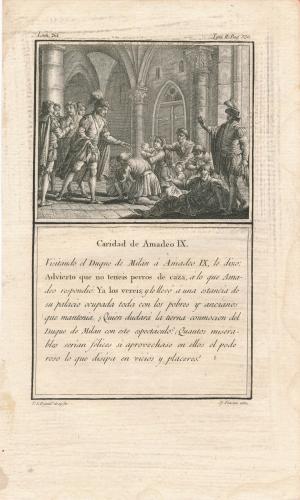 Caridad de Amadeo IX.
Visitando el Duque de Milan á Amadeo IX, le dixo:
Advierto que no teneis perros de caza, a lo que Ama-
deo respondió: Ya los vereis, y le llevó a una estancia de
su palacio ocupada toda con los pobres y ancianos
que mantenia. ¡Quien dudará la tierna conmocion del
Duque de Milan con este espectáculo! ¡Quantos misera-
bles serian felices si aprovechase en ellos el pode-
roso lo que disipa en vicios y placeres!